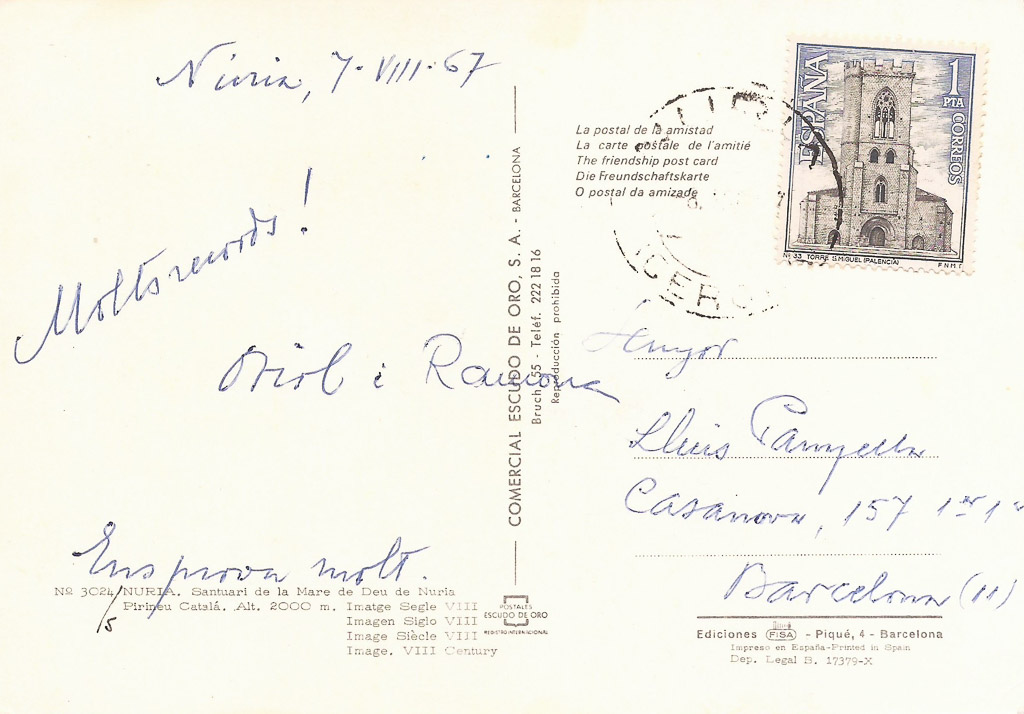 Núria, 7-VIII-67
Molts records!
Oriol i Ramona
Ens prova molt.
Nº 3C24 NURIA. Santuari de la Mare de Deu de Nuria
Pirineu Catalá. Alt. 2000 m. Imatge Segle VIII
Imagen Siglo VIII
Image Siècle VIII
Image. VIII Century
/5
POSTALES
ESCUDO DE ORO
REGISTRO INTERNACIONAL
COMERCIAL ESCUDO DE ORO, S. A. - BARCELONA
Bruch 155 - Teléf. 222 18 16
Reproducción prohibida
La postal de la amistad
La carte postale de l'amitié
The friendship post card
Die Freundschaftskarte
O postal da amizade
ESPAÑA
1 PTA
CORREOS
Nº 33 TORRE S.MIGUEL (PALENCIA)
F N M T
Senyor
Lluís
Casanova, 157 1er 1a
Barcelona (11)
Ediciones FISA - Piqué, 4 - Barcelona
Impreso en España-Printed in Spain
Dep. Legal B. 17379-X